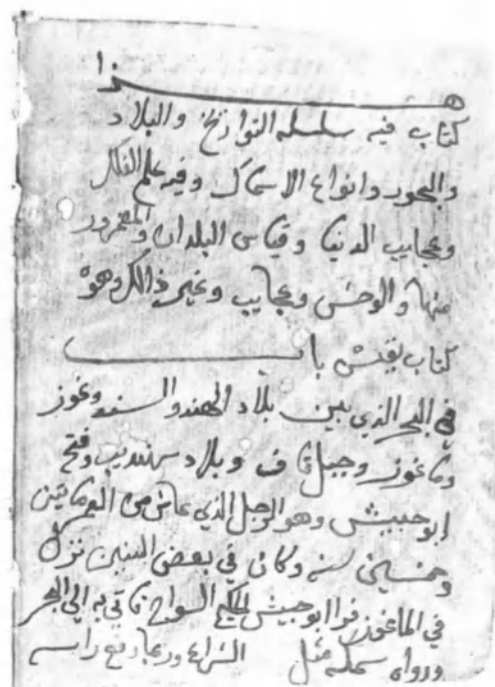 هـــــذا
كتاب فيه سلسلة التواريخ والبلاد
والبحور وانواع الاسماك وفيه علم الفلك
وعجايب الدنيا وقياس البلدان والمعمور
منها والوحش وعجايب وغير ذالك وهو
كتاب نفيس باب
في البحر الذي بين بلاد الهند والسند وغوز
وماغوز وجبل قاف وبلاد سرنديب وفتح
ابو حبيش وهو الرجل الذي عاش من العمر مايتين
وخمسين سنه وكان في بعض السنين نزل
في الماغوز فرا ابو حبيش الحكيم السواح قاتي به الي البحر
وروا سمكه مثل الشراع وربما رفع راسه